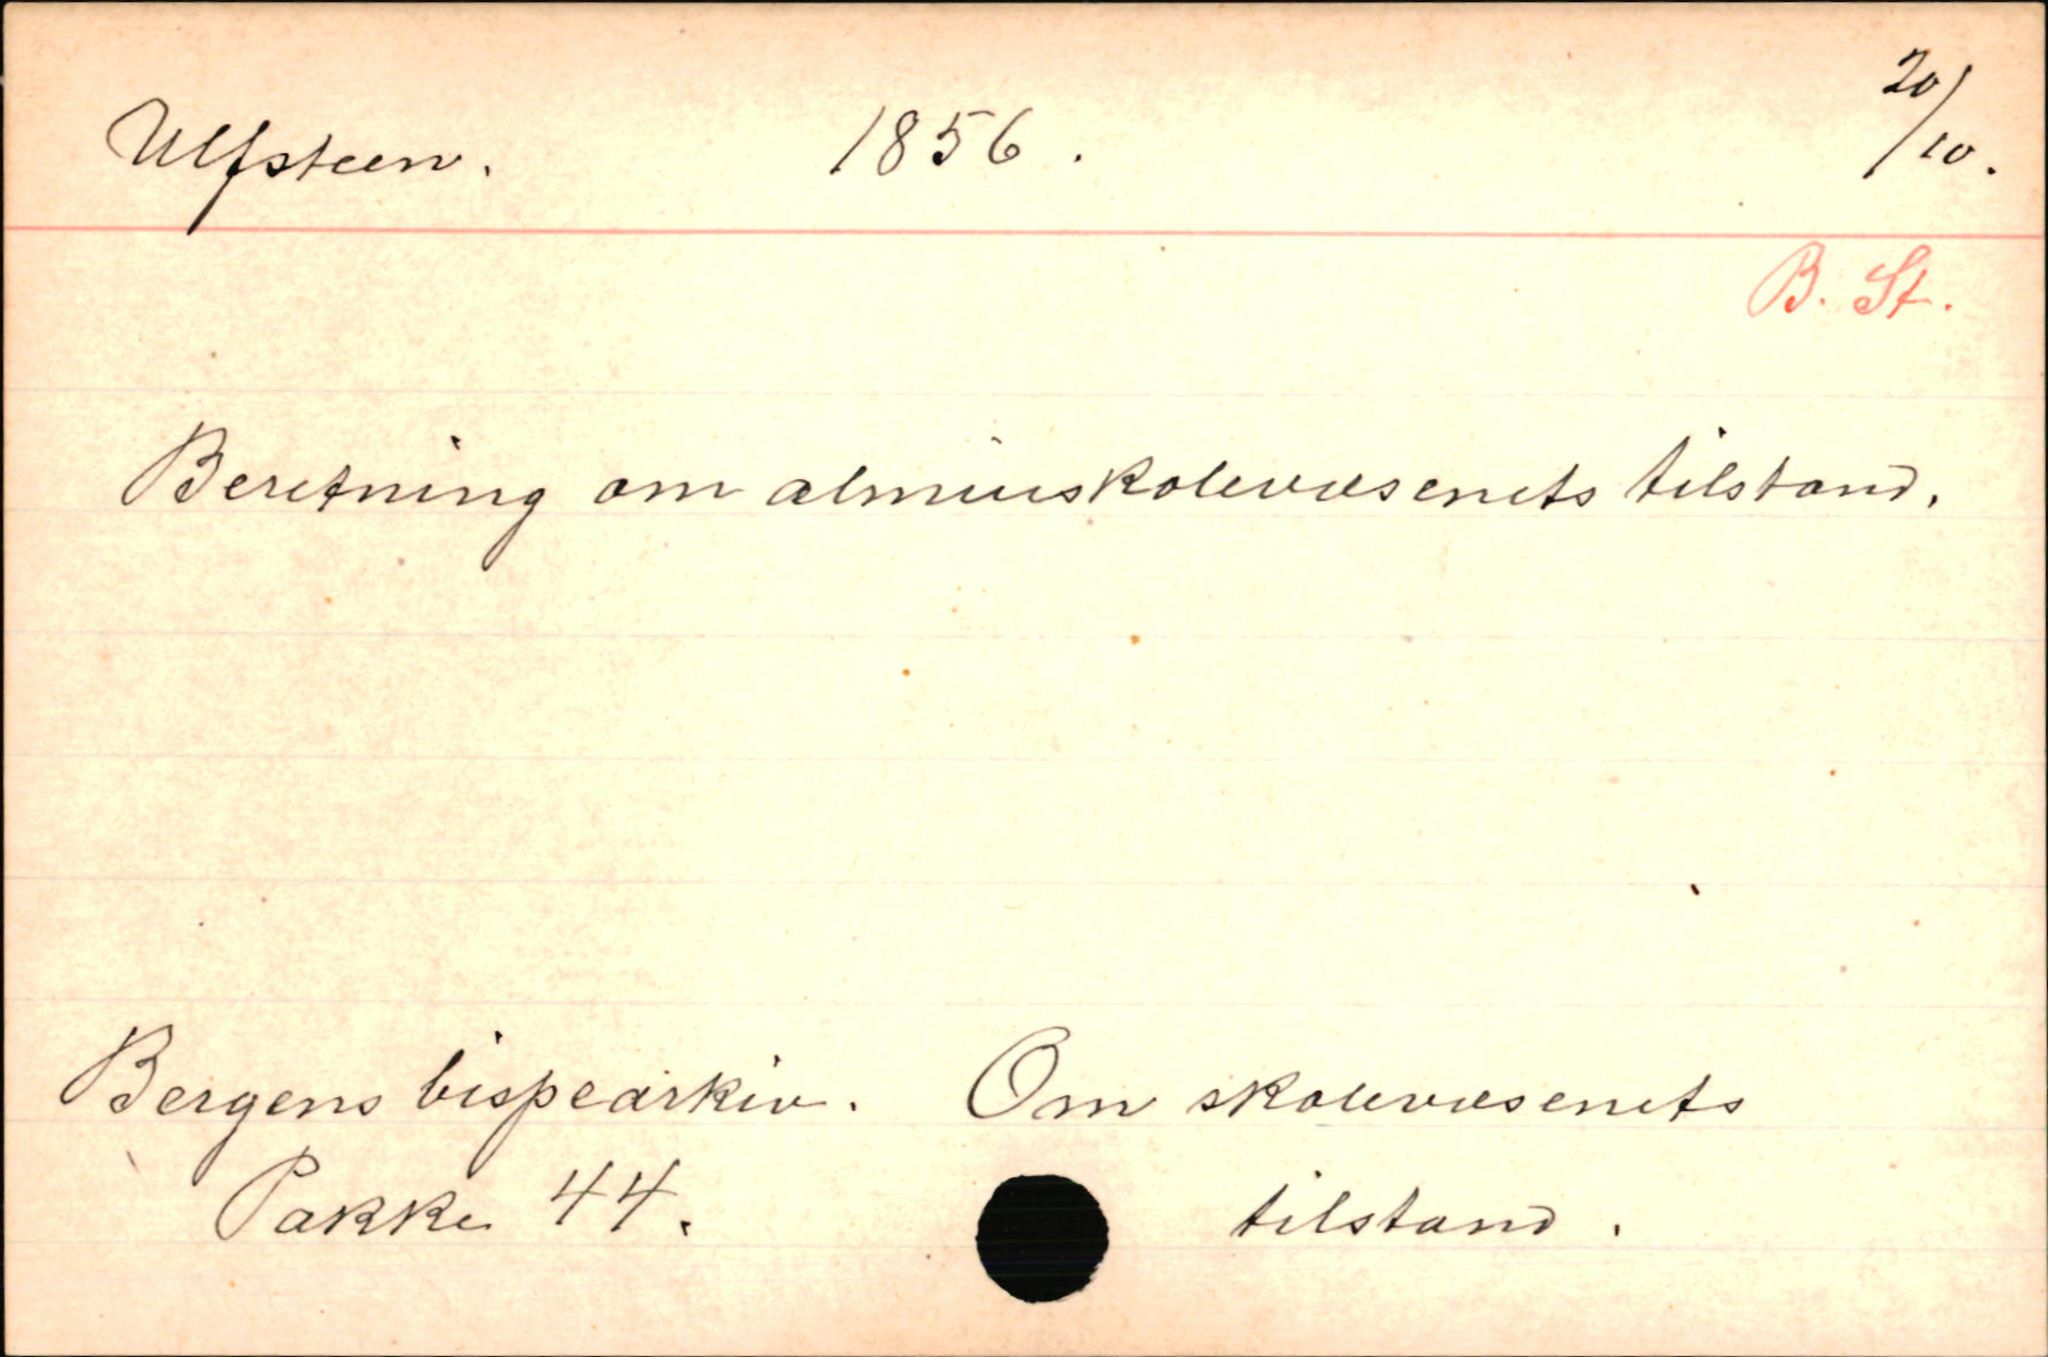 Ulfsteen. 1856. 20/10.
B. St.
Beretning om almueskolevæsenets tilstand.
Bergens bispearkiv. Om skolevæsenets
Pakke 44. tilstand.